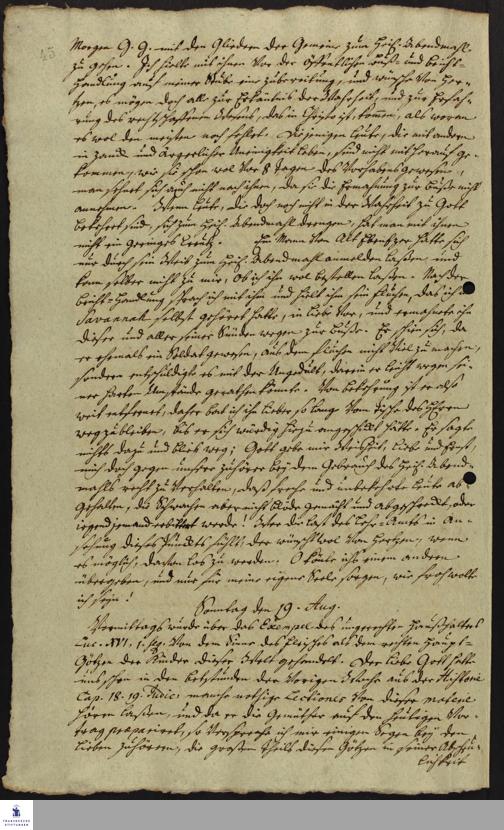 45
Morgen G. G. mit den Gliedern der Gemeine zum Heil. Abendmahl
zu gehen. Ich hielte mit ihnen vor der öffentlichen und Beicht-
Handlung auf meiner Stube eine Zubereitung, und wünsche von Her-
zen, es mögen doch alle zur Erkäntnis der Wahrheit, und zur Erfah-
rung des rechtschaffenen Wesens, das in Christo ist, kommen, als woran
es wol den meisten noch fehlet. Diejenigen Leute, die mit andern
in Zanck und ärgerlicher Uneinigkeit leben, sind nicht mit herauf ge-
kommen, wie sie schon wol vor 8 Tagen des Vorhabens gewesen,
man sehnet sich auch nicht nach ihnen, da sie die Ermahnung zur Busse nicht
annehmen. Wenn Leute, die doch noch nicht in der Wahrheit zu Gott
bekehret sind, sich zum Heil. Abendmahl dringen, hat man mit ihnen
nicht ein geringes Creutz. Ein Mann von Alt Ebenezer hatte sich
nur durch sein Weib zum Heil. Abendmahl anmelden lassen und
kam selber nicht zu mir, ob ich ihn wol bestellen lassen. Nach der
Beicht-Handlung sprach ich mit ihm und hielt ihm sein Fluchen, das ich in
Savannah selbst gehöret hatte, in Liebe vor, und ermahnete ihn
dieser und aller seiner Sünden wegen zur Busse. Er schien sich, da
er ehemals ein Soldat gewesen, aus dem Fluchen nicht viel zu machen,
sondern entschuldigte es mit der Ungedult, darein er leicht wegen sei-
ner harten Umstände gerathen könte. Von Bekehrung ist er also
weit entfernet, daher bat ich ihn lieber so lange vom Tische des Herrn
weg zu bleiben, bis er sich würdig hiezu angeschickt hätte. Er sagte
nichts dazu und blieb weg; Gott gebe mir Weisheit, Liebe und Ernst,
mich doch gegen unsere Zuhörer bey dem Gebrauch des Heil. Abend-
mahls recht zu verhalten, daß freche und unbekehrte Leute ab-
gehalten, die Schwachen aber nicht blöde gemacht und abgeschreckt, oder
irgend jemand erbittert werde! Wer die Last des Lehr-Amts in An-
sehung dieses Puncts fühlt, der wünscht wol von Herzen, wenn
es möglich, davon los zu werden. O könte ichs einem andern
übergeben, und nur für meine eigene Seele sorgen, wie froh wolte
ich seyn!
Sonntag den 19. Aug.
Vormittags wurde über das Exempel des ungerechten Haushalters
Luc. XVI, 1. seq. von dem Sinne des Fleisches als dem rechten Haupt-
Götzen der Kinder dieser Welt gehandelt. Der liebe Gott hatte
uns schon in den Betstunden der vorigen Woche aus der Historie
Cap. 18. 19. Judic. manche nöthige Lectiones von dieser materie
hören lassen, und da er die Gemüther auf den heutigen Vor-
trag praepariret, so verspreche ich mir einigen Segen bey den
lieben Zuhörern, die grosten Theils diesen Götzen in seiner Abscheu-
lichkeit
FRANCKESCHE
STIFTUNGEN